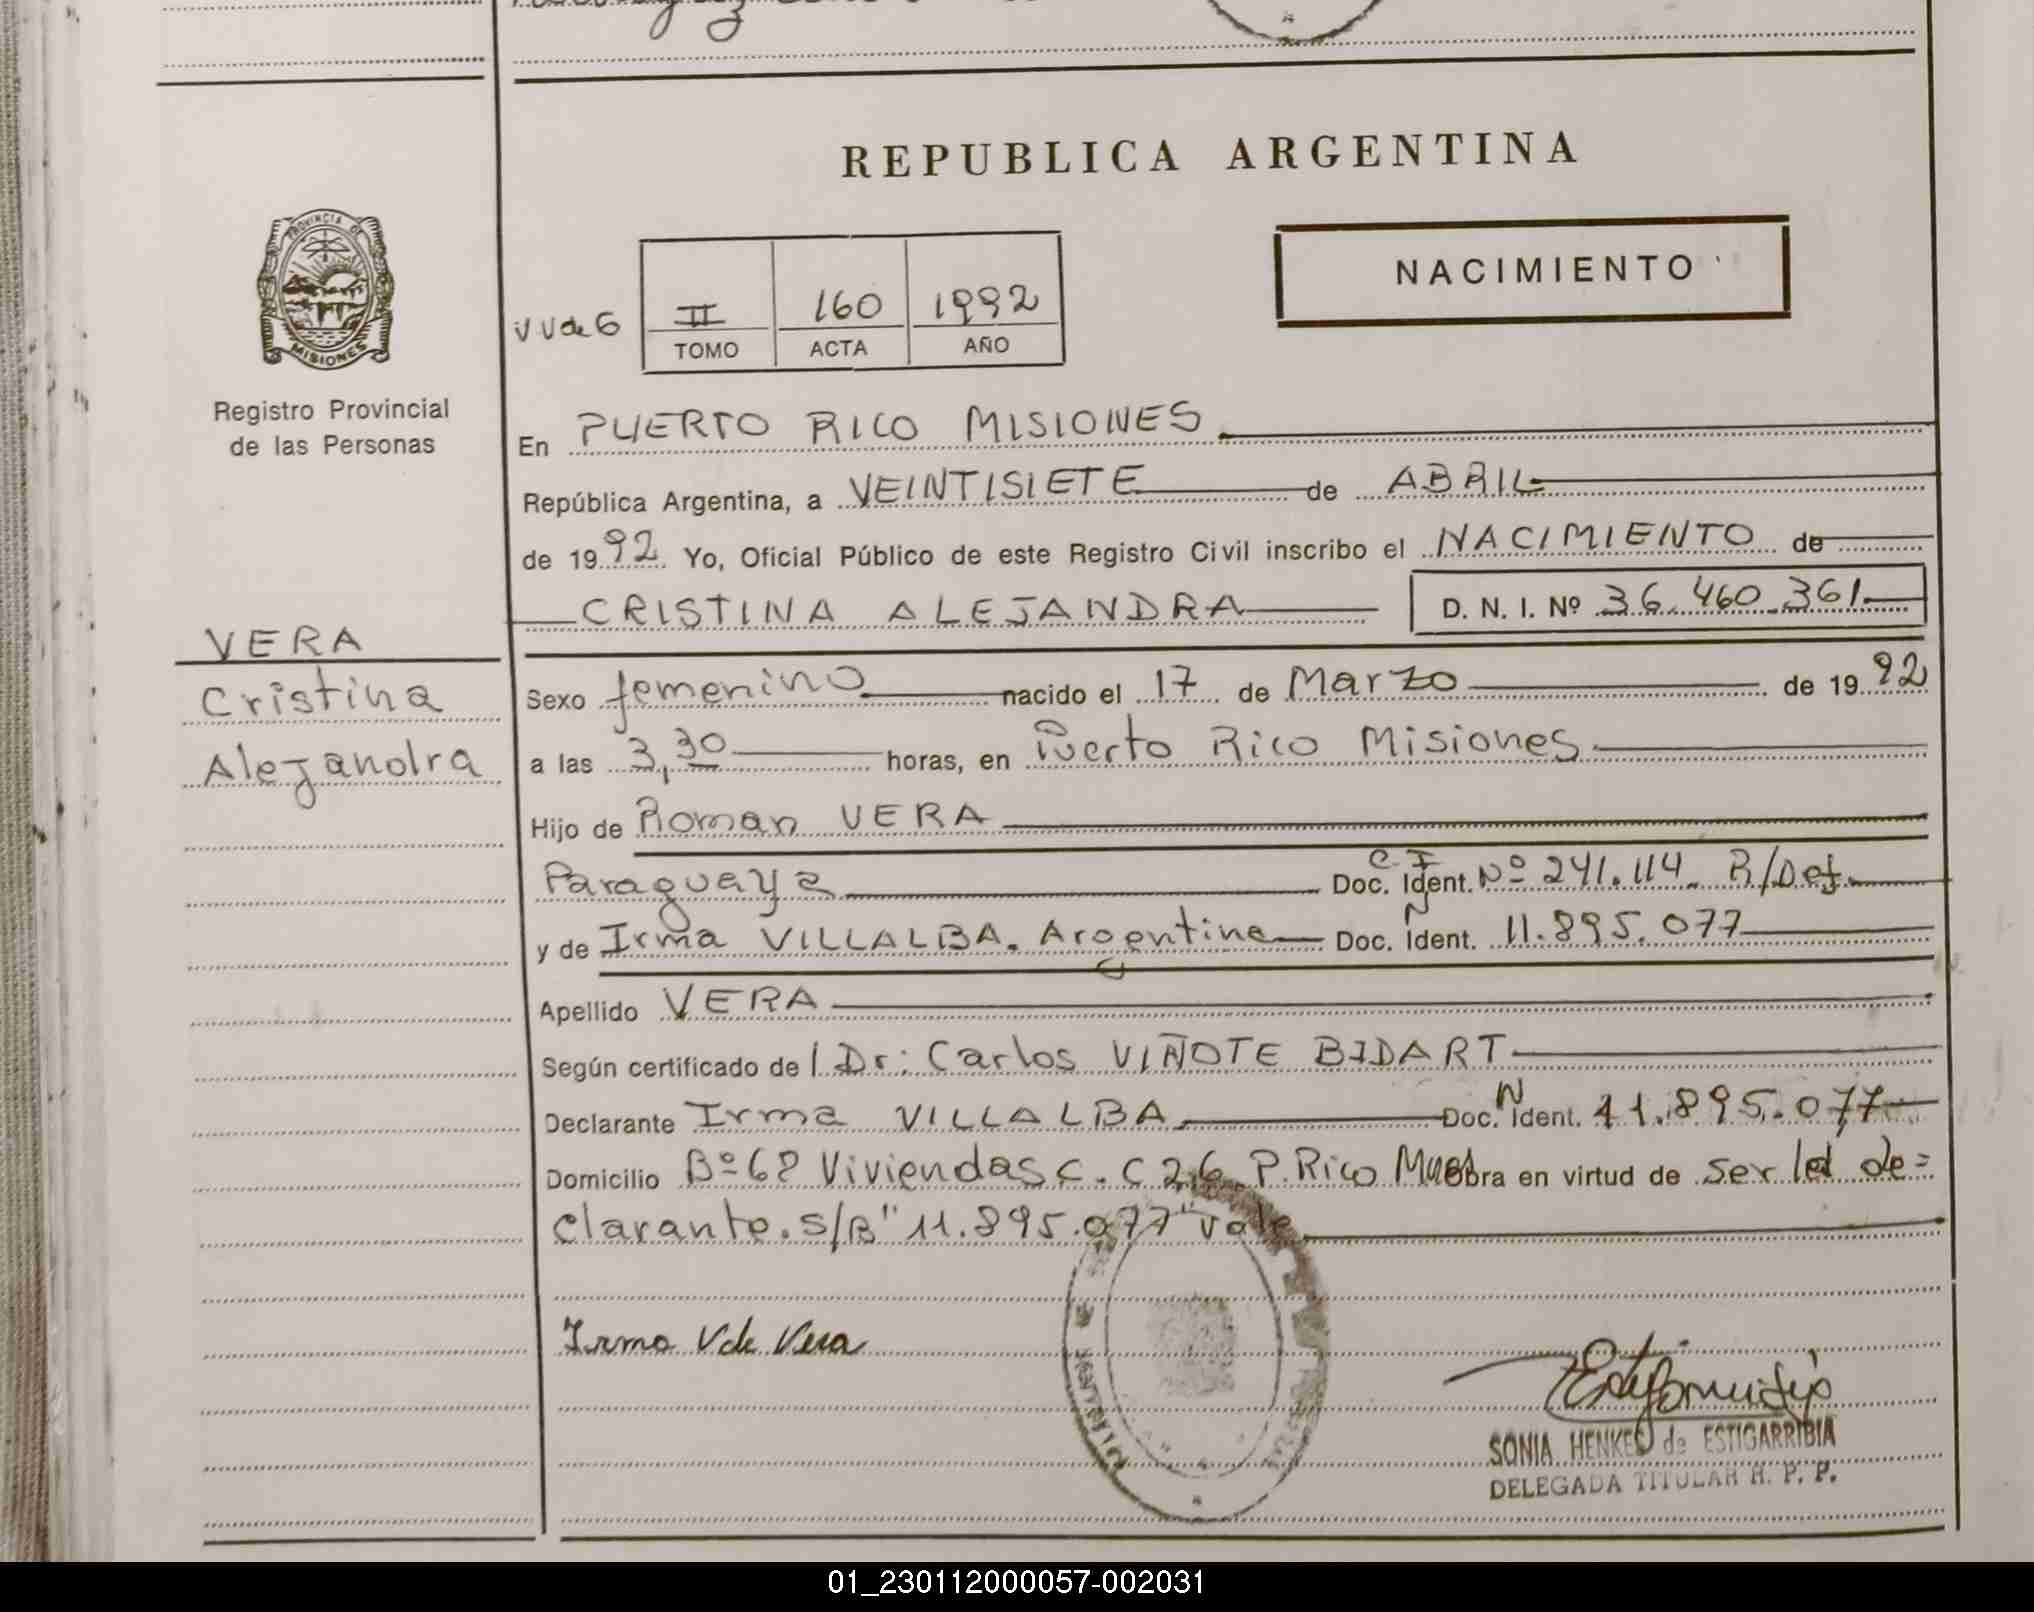 REPUBLICA ARGENTINA
PROVINCIA DE MISIONES
NACIMIENTO
II 160 1992
TOMO ACTA AÑO
Registro Provincial
de las Personas
En PUERTO RICO MISIONES
República Argentina, a VEINTISIETE de ABRIL
de 1992 Yo, Oficial Público de este Registro Civil inscribo el NACIMIENTO de
CRISTINA ALEJANDRA D. N. I. Nº 36.460.361
VERA
Cristina
Alejandra
Sexo femenino nacido el 17 de Marzo de 1992
a las 3,30 horas, en Puerto Rico Misiones
Hijo de Roman VERA
Paraguaya C.I Doc. Ident. Nº 241.114. R/Def.
y de Irma VILLALBA. Argentina Doc. N Ident. 11.895.077
Apellido VERA
Según certificado de l Dr: Carlos VIÑOTE BIDART
Declarante Irma VILLALBA Doc. N Ident. 11.895.077
Domicilio Bº 68 Viviendas C. C 26 P. Rico Mnes Obra en virtud de ser la de=
clarante. S/B "11.895.077" vale
Irma V de Vera
SONIA HENKES de ESTIGARRIBIA
DELEGADA TITULAR R. P. P.
01_230112000057-002031